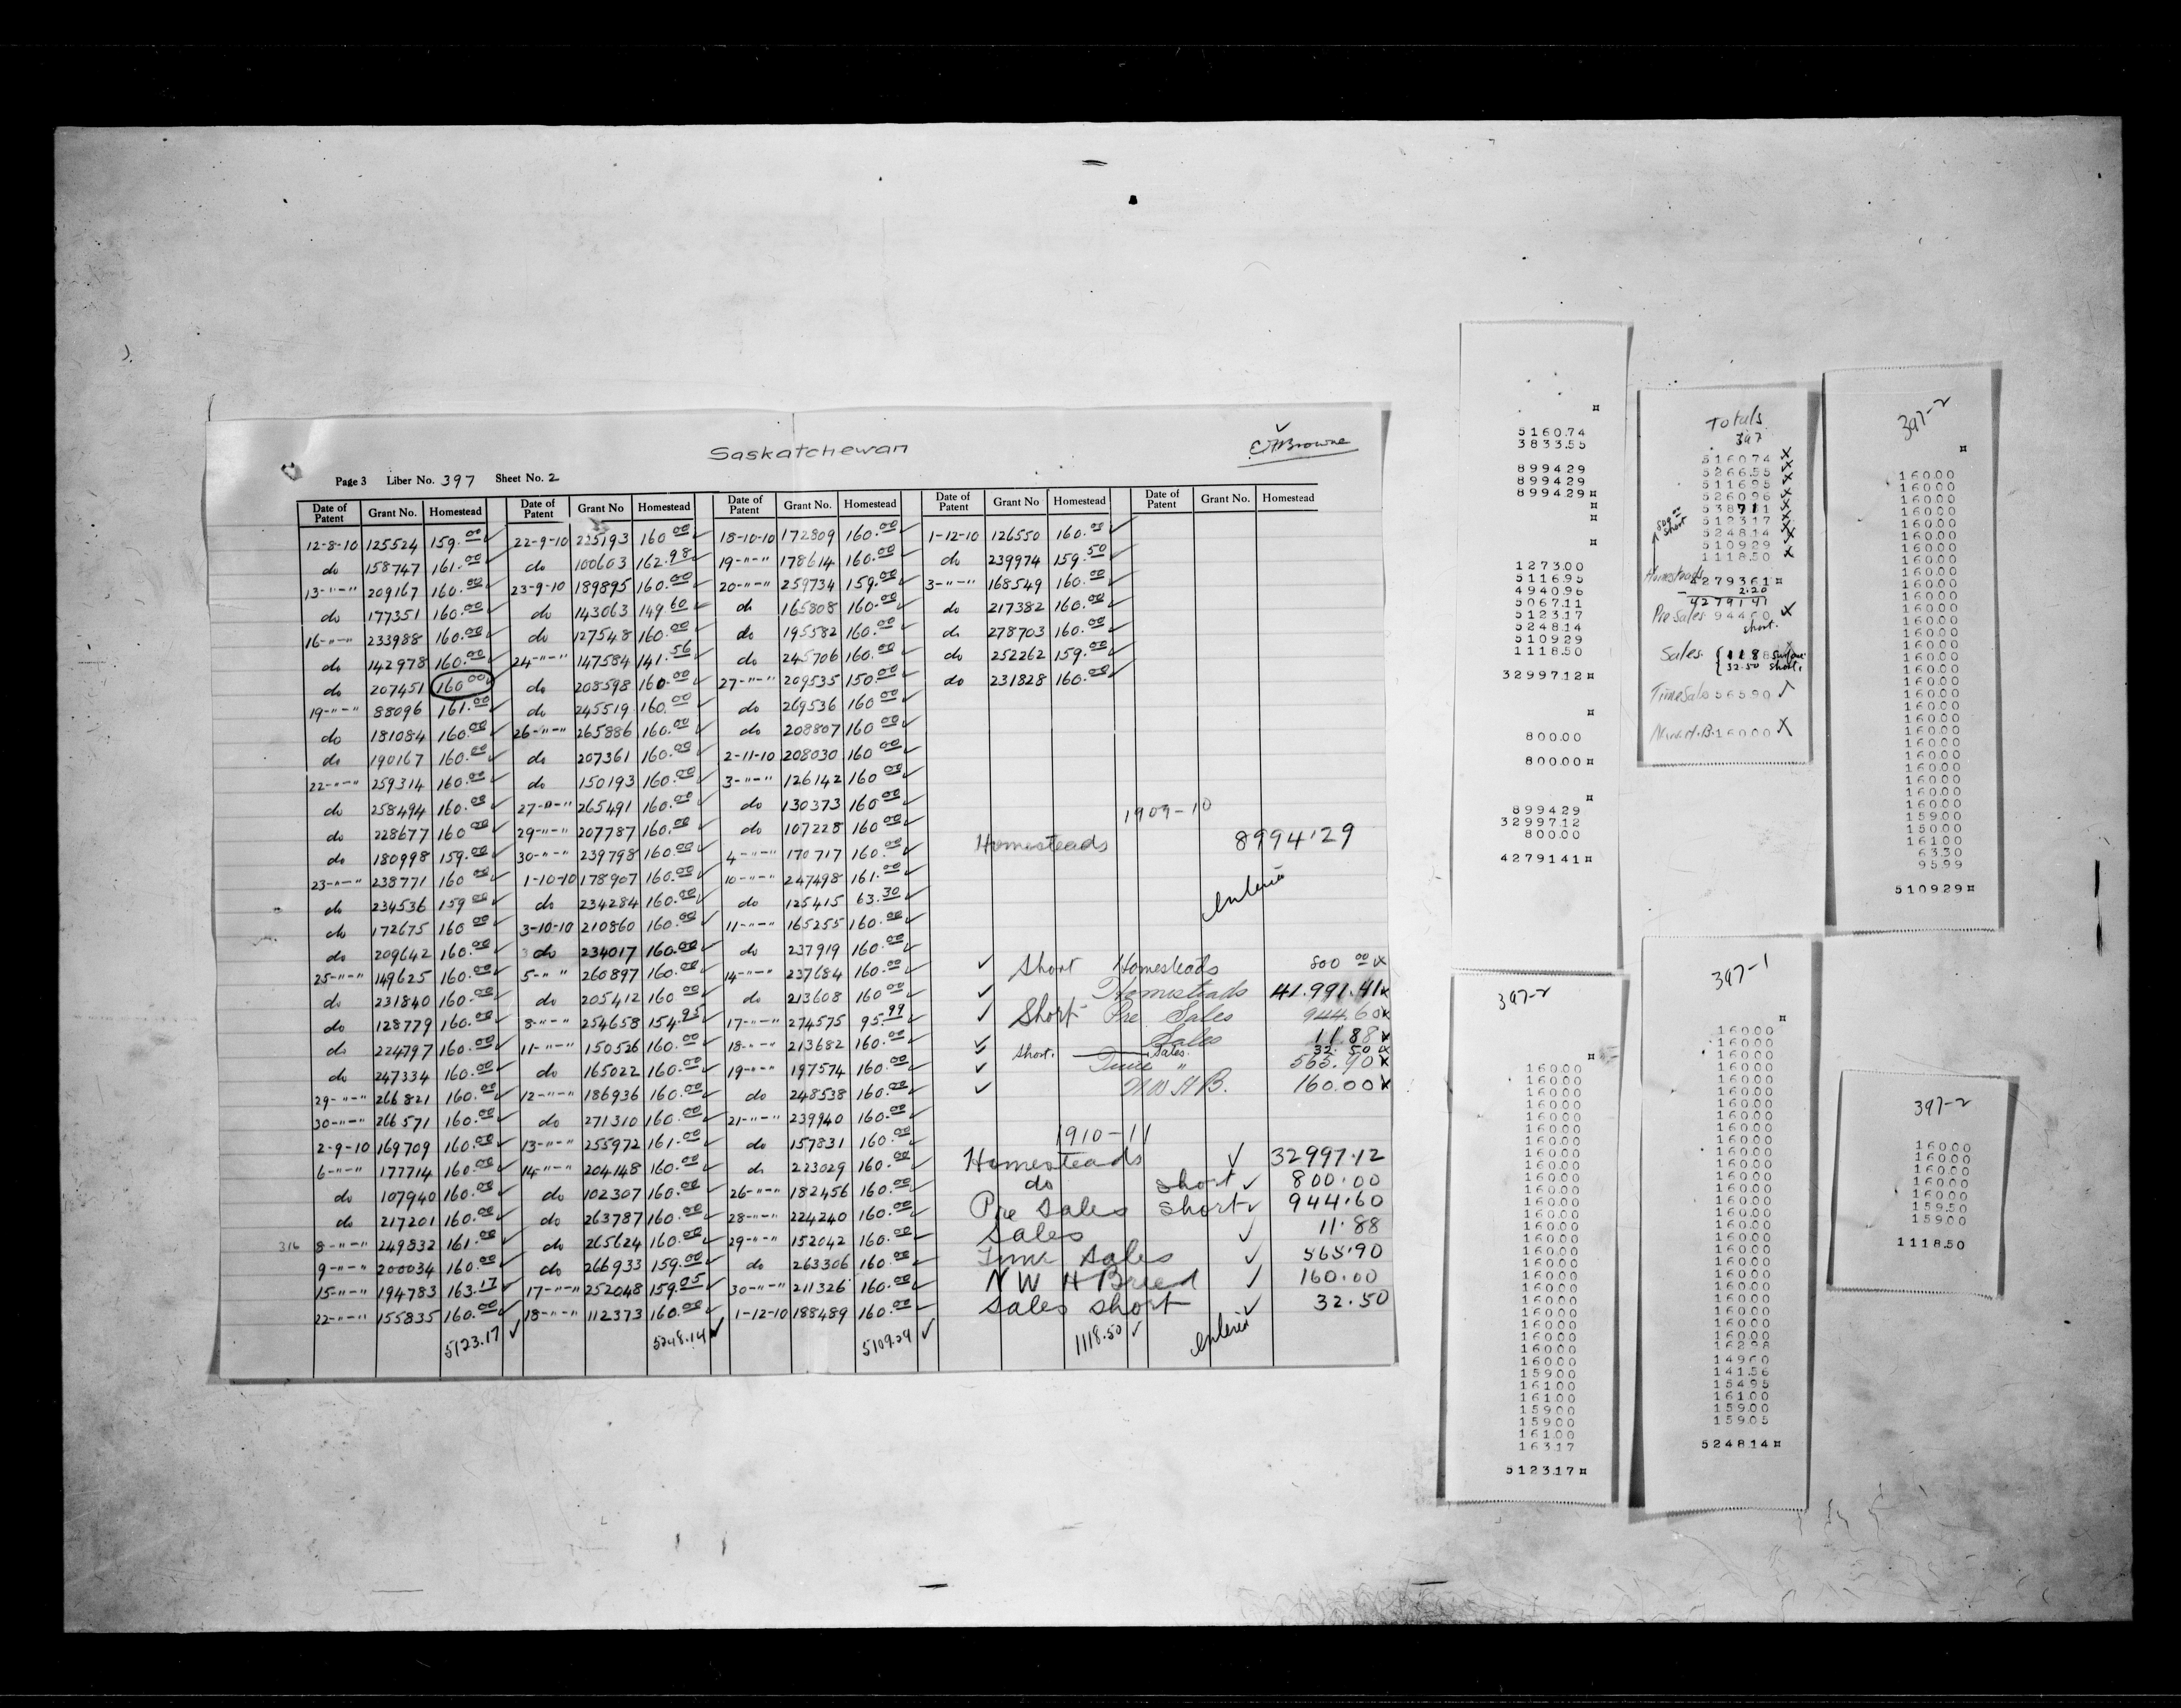 Saskatchewan
E H Browne
Page 3 Liber No. 397 Sheet No. 2
Date of Patent Grant No. Homestead Date of Patent Grant No Homestead Date of Patent Grant No. Homestead Date of Patent Grant No Homestead Date of Patent Grant No. Homestead
12-8-10 125524 159.00 22-9-10 225193 160 00 18-10-10 172809 160.00 1-12-10 126550 160.00
do 158747 161.00 do 100603 162.98 19-"-" 178614 160.00 do 239974 159.50
13-"-" 209167 160.00 23-9-10 189895 160.00 20-"-" 259734 159.00 3-"-" 168549 160.00
do 177351 160.00 do 143063 149.60 do 165808 160.00 do 217382 160.00
16-"-" 233988 160.00 do 127548 160.00 do 195582 160.00 do 278703 160.00
do 142978 160.00 24-"-" 147584 141.56 do 245706 160.00 do 252262 159.00
do 207451 160 00 do 208598 160.00 27-"-" 209535 150.00 do 231828 160.00
19-"-" 88096 161.00 do 245519 160.00 do 269536 160 00
do 181084 160.00 26-"-" 265886 160.00 do 208807 160 00
do 190167 160.00 do 207361 160.00 2-11-10 208030 160 00
22-"-" 259314 160.00 do 150193 160.00 3-"-" 126142 160 00
do 258494 160.00 27-"-" 265491 160.00 do 130373 160 00
do 228677 160 00 29-"-" 207787 160.00 do 107228 160 00
do 180998 159.00 30-"-" 239798 160.00 4-"-" 170717 160.00
23-"-" 238771 160 00 1-10-10 178907 160.00 10-"-" 247498 161.00
do 234536 159 00 do 234284 160.00 do 125415 63.30
do 172675 160 00 3-10-10 210860 160.00 11-"-" 165255 160.00
do 209642 160.00 do 234017 160.00 do 237919 160.00
25-"-" 149625 160.00 5-" " 260897 160.00 14-"-" 237684 160.00
do 231840 160.00 do 205412 160 00 do 213608 160 00
do 128779 160.00 8-"-" 254658 154.95 17-"-" 274575 95.99
do 224797 160.00 11-"-" 150526 160.00 18-"-" 213682 160.00
do 247334 160.00 do 165022 160.00 19-"-" 197574 160.00
29-"-" 266821 160.00 12-"-" 186936 160.00 do 248538 160.00
30-"-" 266571 160.00 do 271310 160.00 21-"-" 239940 160.00
2-9-10 169709 160.00 13-"-" 255972 161.00 do 157831 160.00
6-"-" 177714 160.00 14-"-" 204148 160.00 do 223029 160.00
do 107940 160.00 do 102307 160.00 26-"-" 182456 160.00
do 217201 160.00 do 263787 160.00 28-"-" 224240 160.00
316 8-"-" 249832 161.00 do 265624 160.00 29-"-" 152042 160.00
9-"-" 200034 160.00 do 266933 159.00 do 263306 160.00
15-"-" 194783 163.17 17-"-" 252048 159.05 30-"-" 211326 160.00
22-"-" 155835 160.00 18-"-" 112373 160.00 1-12-10 188489 160.00
5123.17 ✓ 5248.14 ✓ 5109.29 ✓ 1118.50 ✓
1909-10
Homesteads 8994.29
entered
✓ Short Homesteads 800 00 x
✓ Homesteads 41.991.41 x
✓ Short Pre Sales 944.60 x
✓ Sales 11.88 x
short. Sales. 32.50 x
✓ Time " 565.90 x
✓ N W H B. 160.00 x
1910-11
Homesteads ✓ 32997.12
do short ✓ 800.00
Pre Sales short ✓ 944.60
Sales ✓ 11.88
Time Sales ✓ 565.90
N W H Breed ✓ 160.00
Sales short ✓ 32.50
entered
5160.74
3833.55
899429
899429
899429¤
1273.00
5116.95
4940.96
5067.11
5123.17
5248.14
510929
1118.50
3299712¤
800.00
800.00¤
899429
3299712
800.00
4279141¤
Totals
397
516074 x
5266.55 x
511695 x
526096 x
538711 x
512317 x
524814 x
510929 x
1118.50 x
800 00 short
Homesteads 4279361¤
- 2.20
4279141
Pre Sales 94460 x
short.
Sales. { 11.88
32.50 short.
Time Sales 56590 ✓
N.W.H.B. 16000 x
397-2
16000
16000
16000
16000
16000
16000
16000
16000
16000
16000
16000
16000
16000
16000
16000
16000
16000
16000
16000
16000
16000
16000
16000
16000
16000
16000
16000
16000
15900
15000
16100
63.30
95.99
510929¤
397-2
16000
16000
16000
16000
16000
16000
16000
16000
16000
16000
16000
16000
16000
16000
16000
16000
16000
16000
16000
16000
16000
16000
16000
16000
16000
15900
16100
16100
15900
15900
16100
16317
512317¤
397-1
16000
16000
16000
16000
16000
16000
16000
16000
16000
16000
16000
16000
16000
16000
16000
16000
16000
16000
16000
16000
16000
16000
16000
16000
16000
16000
16298
14960
141.56
15495
16100
15900
15905
524814¤
397-2
16000
16000
16000
16000
16000
15950
15900
111850